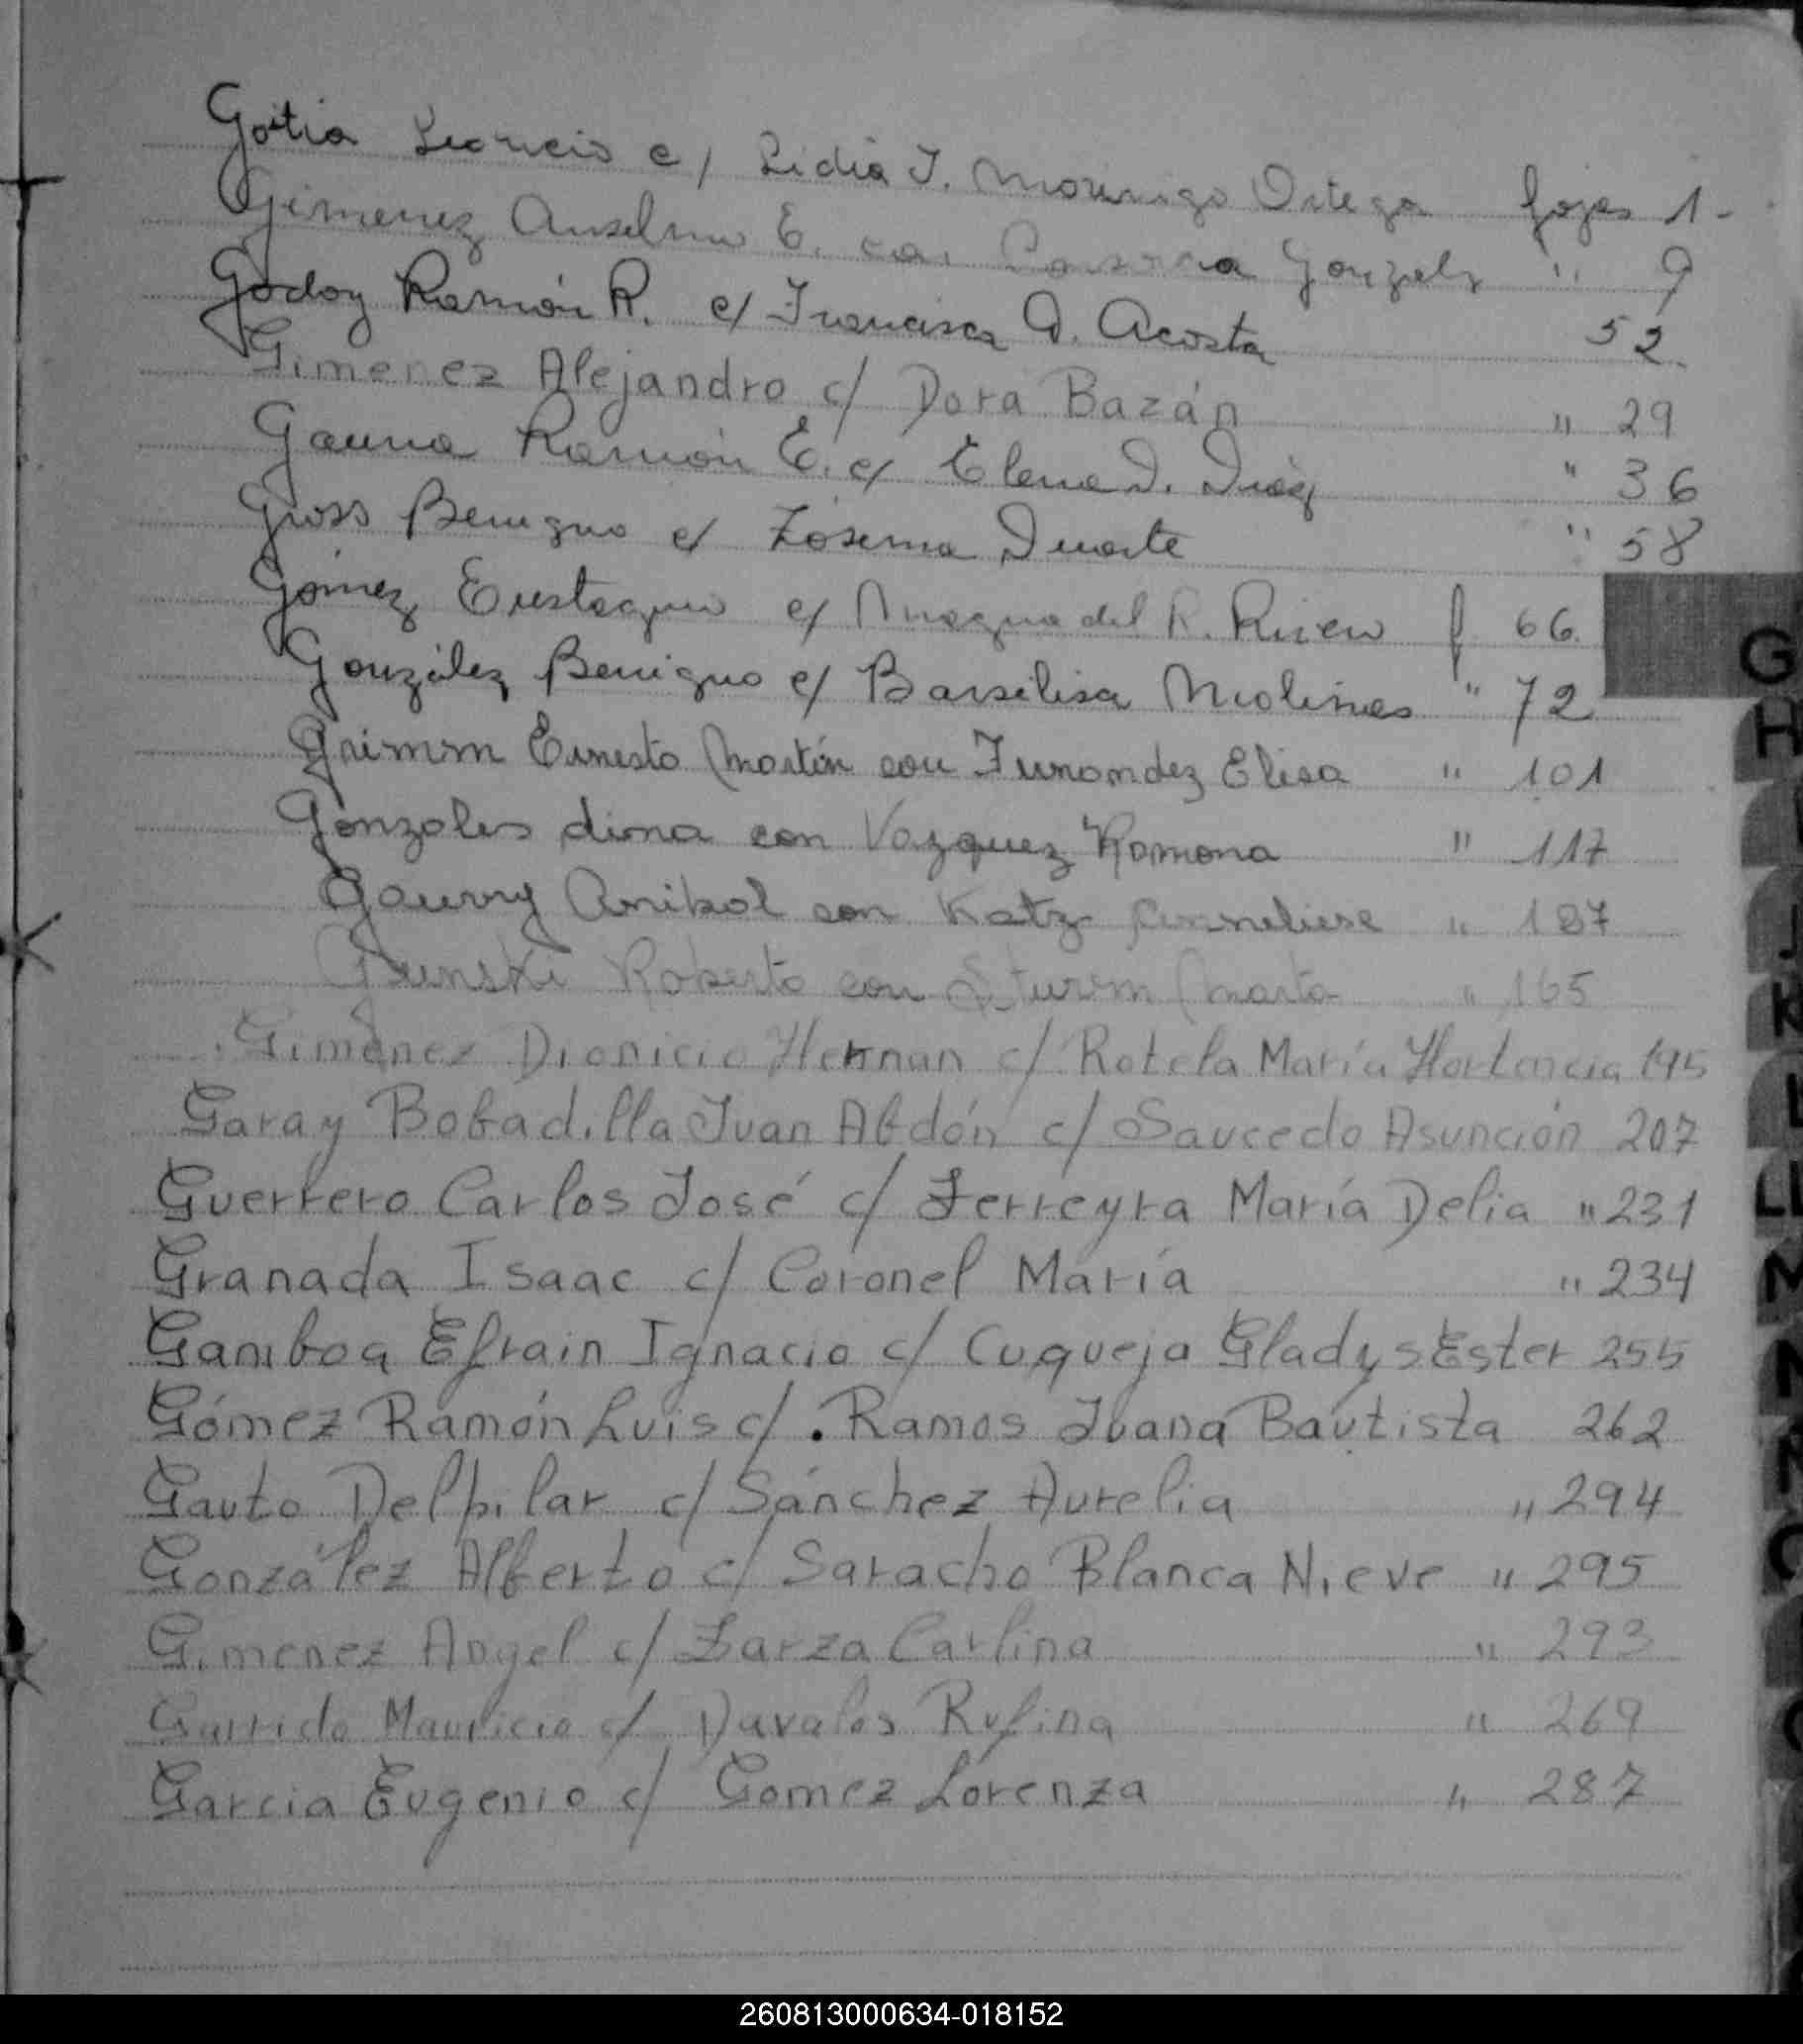 Goitia Leoncio c/ Lidia I. Morinigo Ortega fojas 1-
Gimenez Anselmo E. con Gonzalz " 9
Godoy Ramón R. c/ Francisca D. Acosta 52
Gimenez Alejandro c/ Dora Bazán " 29
Gauna Ramón E. c/ Elena D. Diáz " 36
Gross Benigno c/ Zósema Duarte " 58
Gómez Eustaquio c/ del R. f 66
González Benigno c/ Barsilisa Molinas " 72
Grimm Ernesto Martín con Fernandez Elisa " 101
Gonzales dima con Vazquez Ramona " 117
Gaurry Anibal con Katz Anneliese " 187
Roberto con Sturm Marta " 165
Gimenez Dionicio Hernan c/ Rotela María Hortencia 195
Garay Bobadilla Juan Abdón c/ Saucedo Asunción 207
Guerrero Carlos José c/ Ferreyra María Delia " 231
Granada Isaac c/ Coronel María " 234
Gamboa Efrain Ignacio c/ Cuqueja Gladys Ester 255
Gómez Ramón Luis c/. Ramos Juana Bautista 262
Gauto Delpilar c/ Sánchez Aurelia " 294
González Alberto c/ Saracho Blanca Nieve " 295
Gimenez Angel c/ Zarza Carlina " 293
Garrido Mauricio c/ Davalos Rufina " 269
Garcia Eugenio c/ Gomez Lorenza " 287
G
H
I
J
K
L
LL
M
N
Ñ
O
260813000634-018152